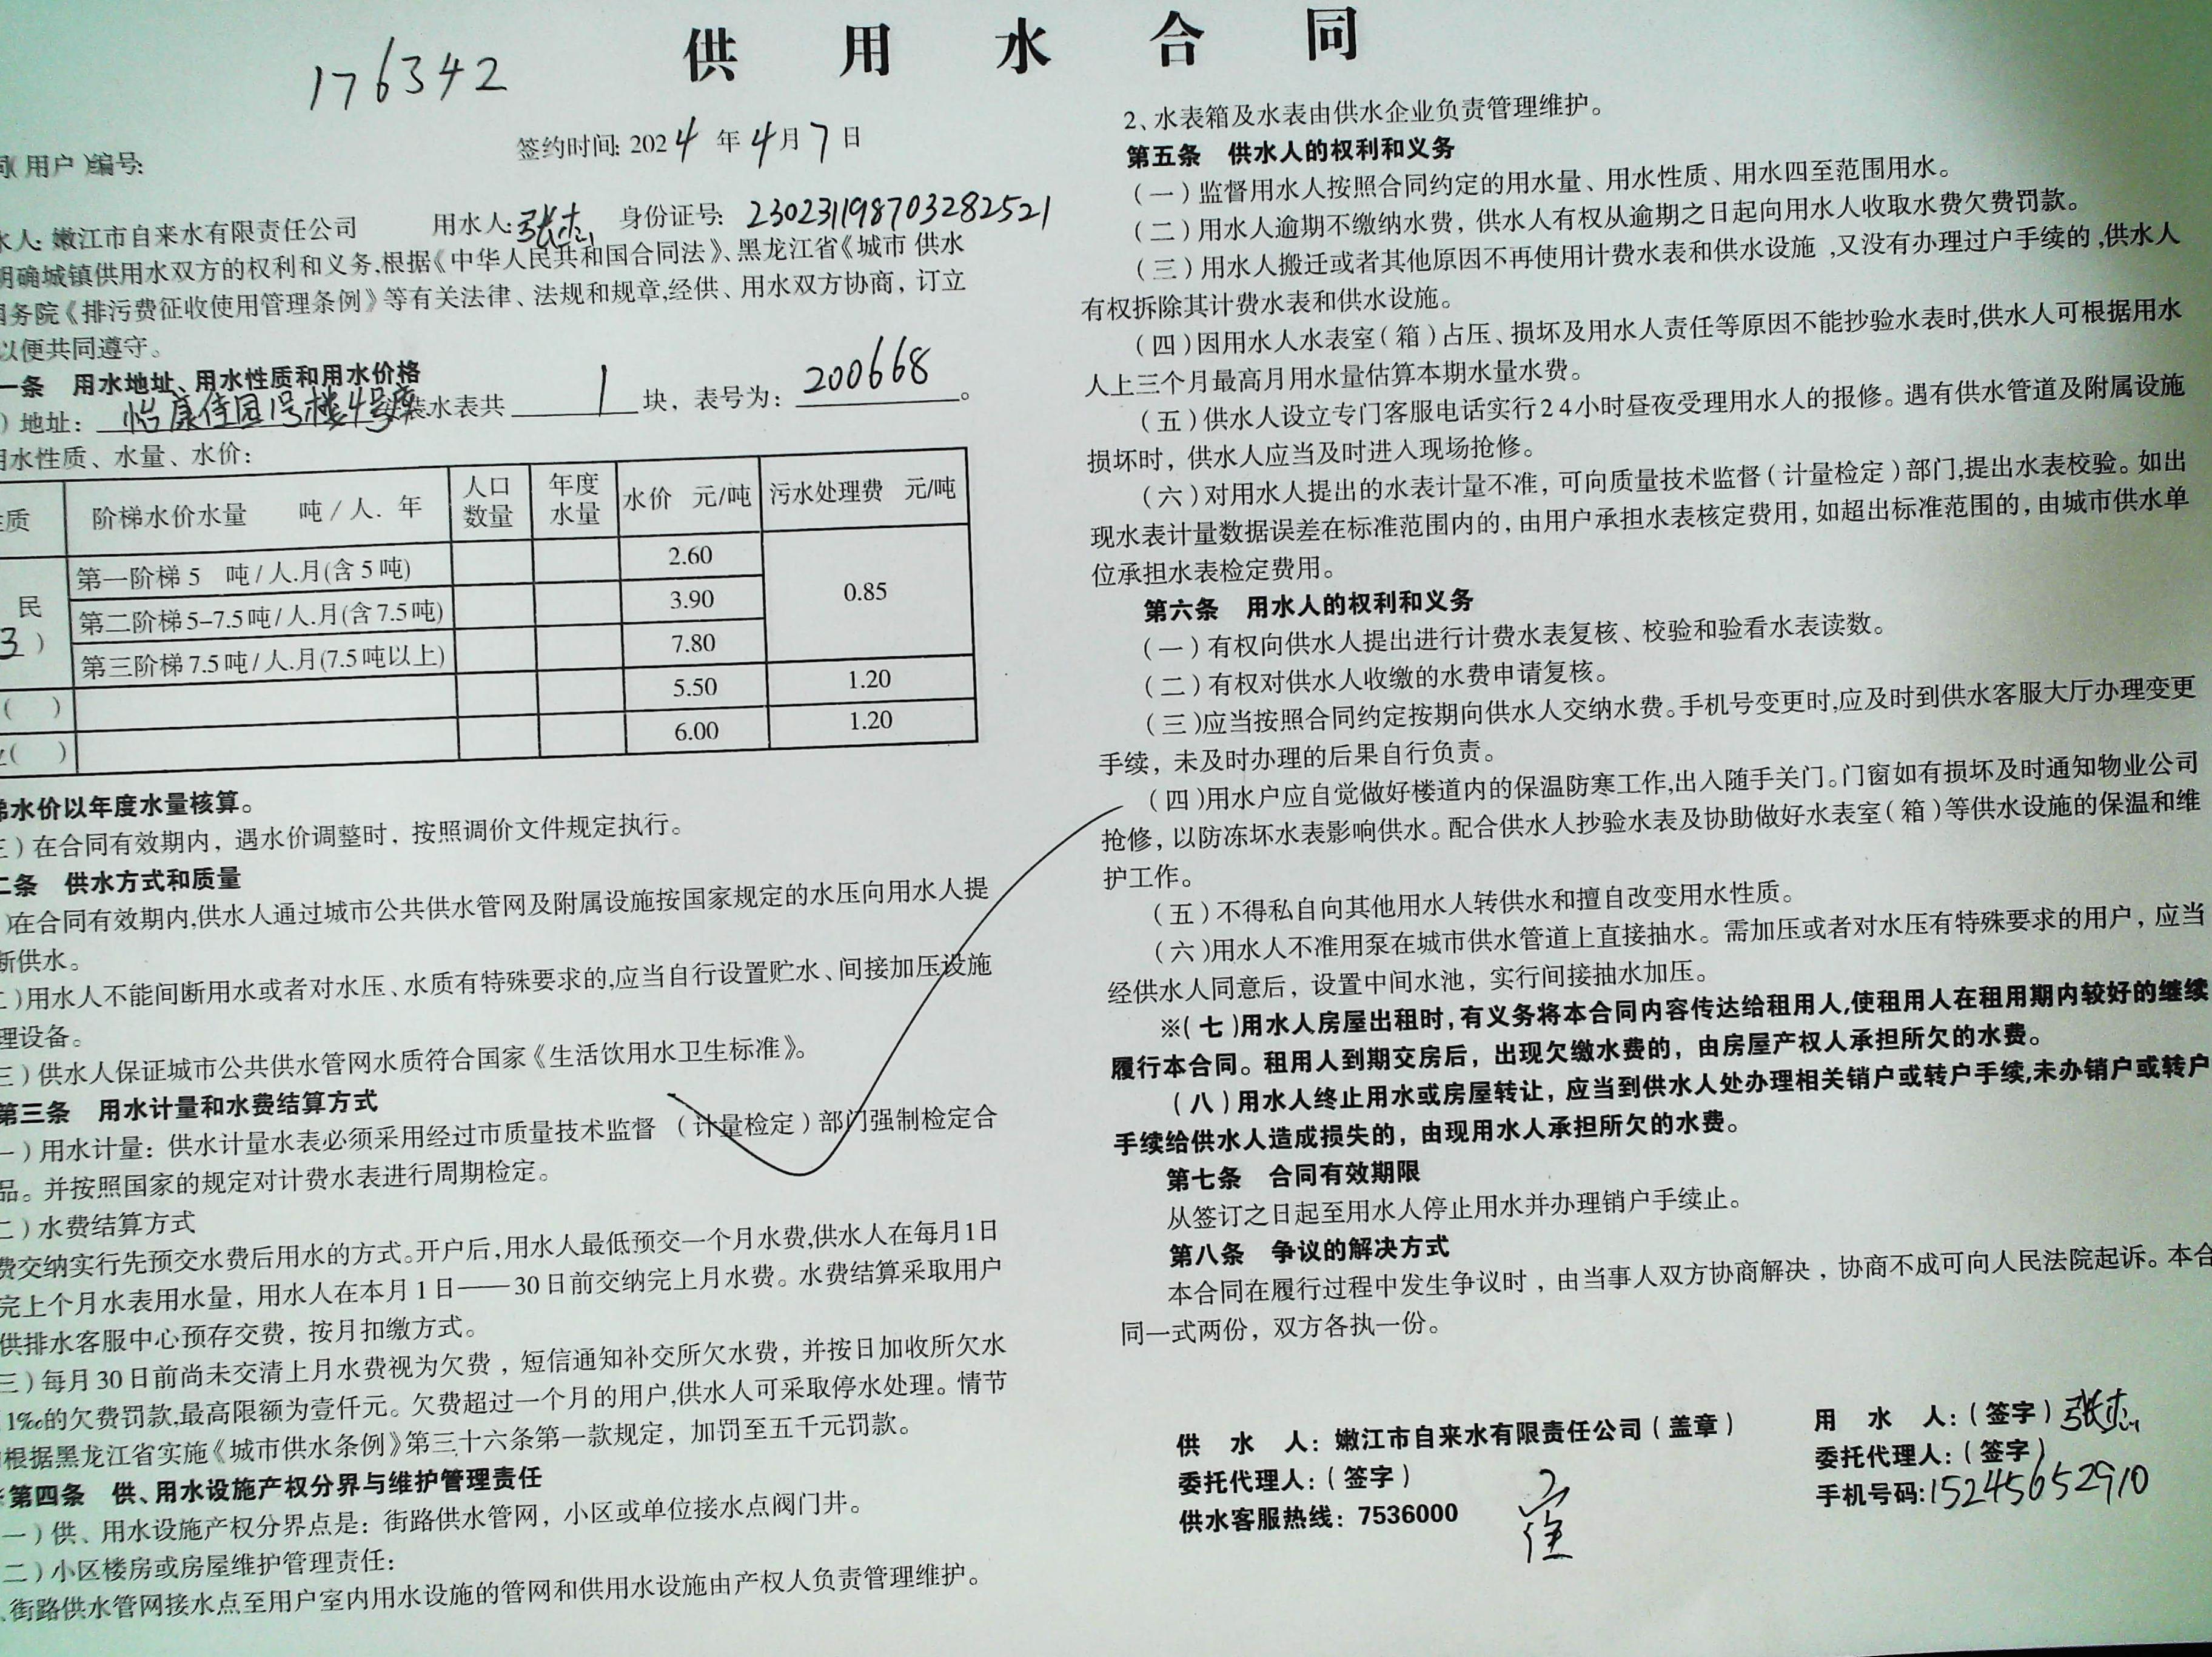 供 用 水 合 同
176342
签约时间: 2024 年 4 月 7 日
(用户)编号:
水人: 嫩江市自来水有限责任公司 用水人: 张杰 身份证号: 230231198703282521
明确城镇供用水双方的权利和义务,根据《中华人民共和国合同法》、黑龙江省《城市 供水
务院《排污费征收使用管理条例》等有关法律、法规和规章,经供、用水双方协商, 订立
以便共同遵守。
一条 用水地址、用水性质和用水价格
)地址: 怡康佳园1号楼4号库 装水表共 1 块, 表号为: 200668。
用水性质、水量、水价:
质 阶梯水价水量 吨/人. 年 人口数量 年度水量 水价 元/吨 污水处理费 元/吨
民 3 )
第一阶梯 5 吨/人.月(含 5 吨) 2.60 0.85
第二阶梯 5–7.5吨/人.月(含7.5吨) 3.90
第三阶梯 7.5吨/人.月(7.5吨以上) 7.80
( ) 5.50 1.20
( ) 6.00 1.20
梯水价以年度水量核算。
三)在合同有效期内, 遇水价调整时, 按照调价文件规定执行。
二条 供水方式和质量
)在合同有效期内,供水人通过城市公共供水管网及附属设施按国家规定的水压向用水人提
断供水。
二)用水人不能间断用水或者对水压、水质有特殊要求的,应当自行设置贮水、间接加压设施
理设备。
三)供水人保证城市公共供水管网水质符合国家《生活饮用水卫生标准》。
第三条 用水计量和水费结算方式
一)用水计量: 供水计量水表必须采用经过市质量技术监督 (计量检定)部门强制检定合
品。并按照国家的规定对计费水表进行周期检定。
二)水费结算方式
费交纳实行先预交水费后用水的方式。开户后,用水人最低预交一个月水费,供水人在每月1日
完上个月水表用水量, 用水人在本月 1 日——30 日前交纳完上月水费。水费结算采取用户
供排水客服中心预存交费, 按月扣缴方式。
三)每月 30 日前尚未交清上月水费视为欠费, 短信通知补交所欠水费, 并按日加收所欠水
1‰的欠费罚款,最高限额为壹仟元。欠费超过一个月的用户,供水人可采取停水处理。情节
根据黑龙江省实施《城市供水条例》第三十六条第一款规定, 加罚至五千元罚款。
第四条 供、用水设施产权分界与维护管理责任
一)供、用水设施产权分界点是: 街路供水管网, 小区或单位接水点阀门井。
二)小区楼房或房屋维护管理责任:
、街路供水管网接水点至用户室内用水设施的管网和供用水设施由产权人负责管理维护。
2、水表箱及水表由供水企业负责管理维护。
第五条 供水人的权利和义务
(一)监督用水人按照合同约定的用水量、用水性质、用水四至范围用水。
(二)用水人逾期不缴纳水费, 供水人有权从逾期之日起向用水人收取水费欠费罚款。
(三)用水人搬迁或者其他原因不再使用计费水表和供水设施 ,又没有办理过户手续的,供水人
有权拆除其计费水表和供水设施。
(四)因用水人水表室(箱)占压、损坏及用水人责任等原因不能抄验水表时,供水人可根据用水
人上三个月最高月用水量估算本期水量水费。
(五)供水人设立专门客服电话实行24小时昼夜受理用水人的报修。遇有供水管道及附属设施
损坏时, 供水人应当及时进入现场抢修。
(六)对用水人提出的水表计量不准, 可向质量技术监督(计量检定)部门,提出水表校验。如出
现水表计量数据误差在标准范围内的, 由用户承担水表核定费用, 如超出标准范围的, 由城市供水单
位承担水表检定费用。
第六条 用水人的权利和义务
(一)有权向供水人提出进行计费水表复核、校验和验看水表读数。
(二)有权对供水人收缴的水费申请复核。
(三)应当按照合同约定按期向供水人交纳水费。手机号变更时,应及时到供水客服大厅办理变更
手续, 未及时办理的后果自行负责。
(四)用水户应自觉做好楼道内的保温防寒工作,出入随手关门。门窗如有损坏及时通知物业公司
抢修, 以防冻坏水表影响供水。配合供水人抄验水表及协助做好水表室(箱)等供水设施的保温和维
护工作。
(五)不得私自向其他用水人转供水和擅自改变用水性质。
(六)用水人不准用泵在城市供水管道上直接抽水。需加压或者对水压有特殊要求的用户, 应当
经供水人同意后, 设置中间水池, 实行间接抽水加压。
※(七)用水人房屋出租时, 有义务将本合同内容传达给租用人,使租用人在租用期内较好的继续
履行本合同。租用人到期交房后, 出现欠缴水费的, 由房屋产权人承担所欠的水费。
(八)用水人终止用水或房屋转让, 应当到供水人处办理相关销户或转户手续,未办销户或转户
手续给供水人造成损失的, 由现用水人承担所欠的水费。
第七条 合同有效期限
从签订之日起至用水人停止用水并办理销户手续止。
第八条 争议的解决方式
本合同在履行过程中发生争议时, 由当事人双方协商解决, 协商不成可向人民法院起诉。本合
同一式两份, 双方各执一份。
供 水 人: 嫩江市自来水有限责任公司(盖章)
委托代理人: (签字)
供水客服热线: 7536000
用 水 人: (签字) 张杰
委托代理人: (签字)
手机号码: 15245652910